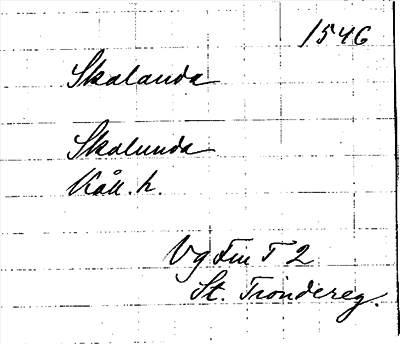 1546
Skalanda
Skalunda
Kåll. h.
Vg Fru T 2
St. Trondereg.